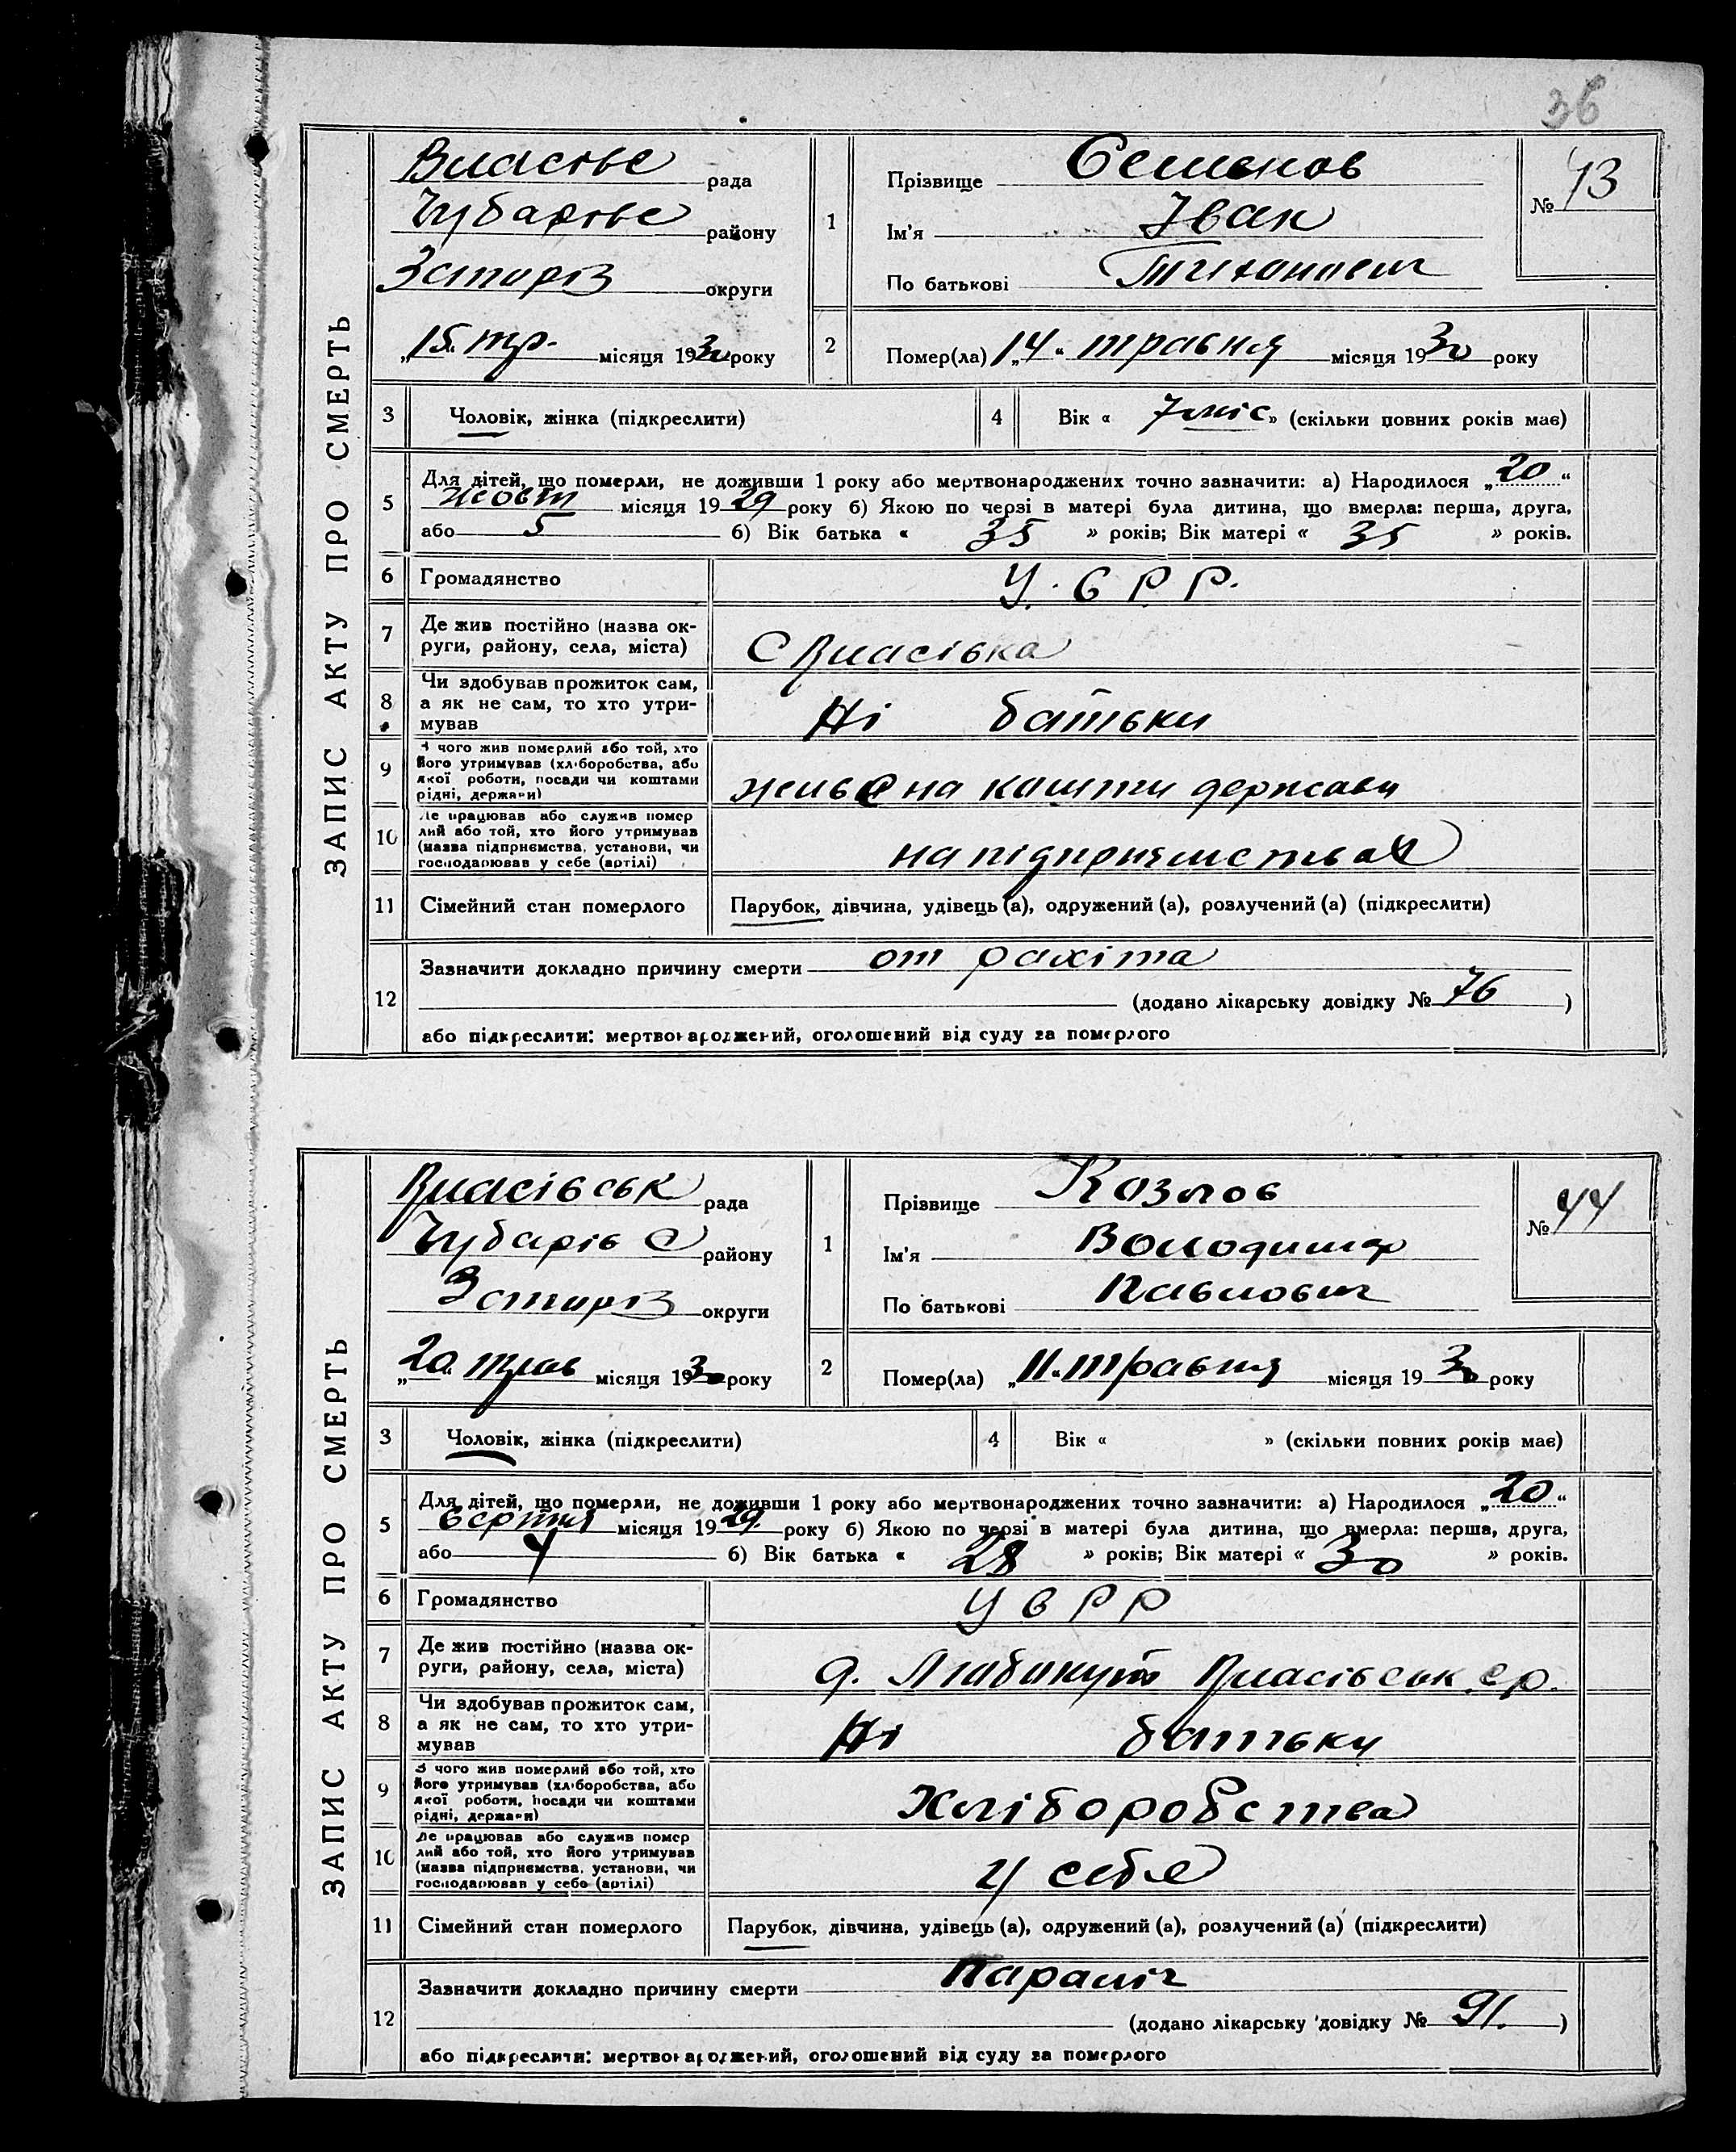 36
ЗАПИС АКТУ ПРО СМЕРТЬ
Власівс рада
Чубарівс району
Запоріз округи
„15“ тр. місяця 1930 року
1 Прізвище Семенов
Ім'я Іван
По батькові Тихонович
№ 43
2 Помер(ла) „14“ травня місяця 1930 року
3 Чоловік, жінка (підкреслити)
4 Вік « 7 міс » (скільки повних років має)
5 Для дітей, що померли, не доживши 1 року або мертвонароджених точно зазначити: а) Народилося „20“
жовт місяця 1929 року б) Якою по черзі в матері була дитина, що вмерла: перша, друга,
або 5 б) Вік батька « 35 » років; Вік матері « 35 » років.
6 Громадянство У. С Р Р.
7 Де жив постійно (назва ок-
руги, району, села, міста) С Власівка
8 Чи здобував прожиток сам,
а як не сам, то хто утри-
мував Ні батьки
9 З чого жив померлий або той, хто
його утримував (хліборобства, або
якої роботи, посади чи коштами
рідні, держави) живе на кошти держави
10 Де працював або служив помер
лий або той, хто його утримував
(назва підприємства, установи, чи
господарював у себе (артілі) на підприємствах
11 Сімейний стан померлого Парубок, дівчина, удівець (а), одружений (а), розлучений (а) (підкреслити)
12 Зазначити докладно причину смерти от рахіта
(додано лікарську довідку № 76 )
або підкреслити: мертвонароджений, оголошений від суду за померлого
ЗАПИС АКТУ ПРО СМЕРТЬ
Власівськ рада
Чубарівс району
Запоріз округи
„20“ трав місяця 1930 року
1 Прізвище Козлов
Ім'я Володимир
По батькові Павлович
№ 44
2 Помер(ла) „11“ травня місяця 1930 року
3 Чоловік, жінка (підкреслити)
4 Вік « » (скільки повних років має)
5 Для дітей, що померли, не доживши 1 року або мертвонароджених точно зазначити: а) Народилося „20“
серпня місяця 1929. року б) Якою по черзі в матері була дитина, що вмерла: перша, друга,
або 4 б) Вік батька « 28 » років; Вік матері « 30 » років.
6 Громадянство У С Р Р
7 Де жив постійно (назва ок-
руги, району, села, міста) Власівськ. с р.
8 Чи здобував прожиток сам,
а як не сам, то хто утри-
мував Ні батьки
9 З чого жив померлий або той, хто
його утримував (хліборобства, або
якої роботи, посади чи коштами
рідні, держави) Хліборобства
10 Де працював або служив помер
лий або той, хто його утримував
(назва підприємства, установи, чи
господарював у себе (артілі) у себе
11 Сімейний стан померлого Парубок, дівчина, удівець (а), одружений (а), розлучений (а) (підкреслити)
12 Зазначити докладно причину смерти параліч
(додано лікарську довідку № 91. )
або підкреслити: мертвонароджений, оголошений від суду за померлого